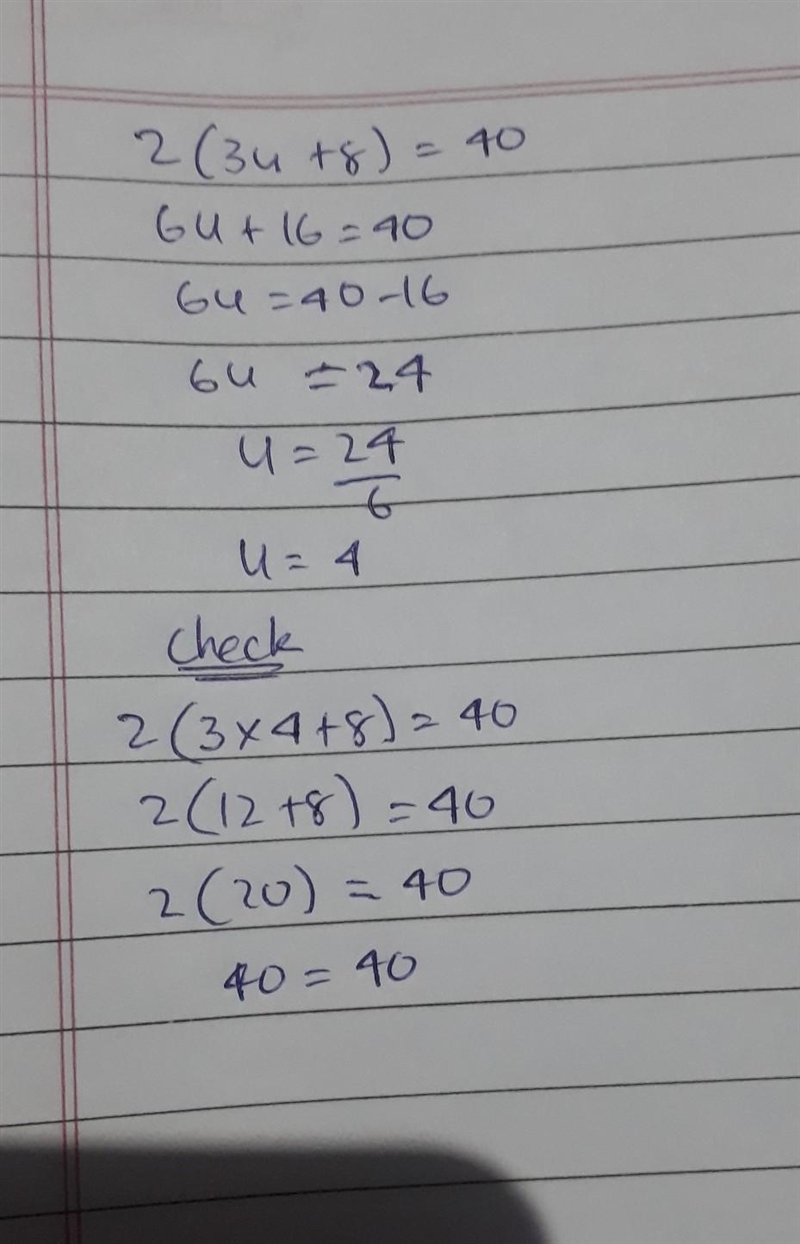 2(3u+8) = 40
6u+16=40
6u=40-16
6u = 24
u = 24/6
u = 4
Check
2(3×4+8)=40
2(12+8) = 40
2(20) = 40
40 = 40